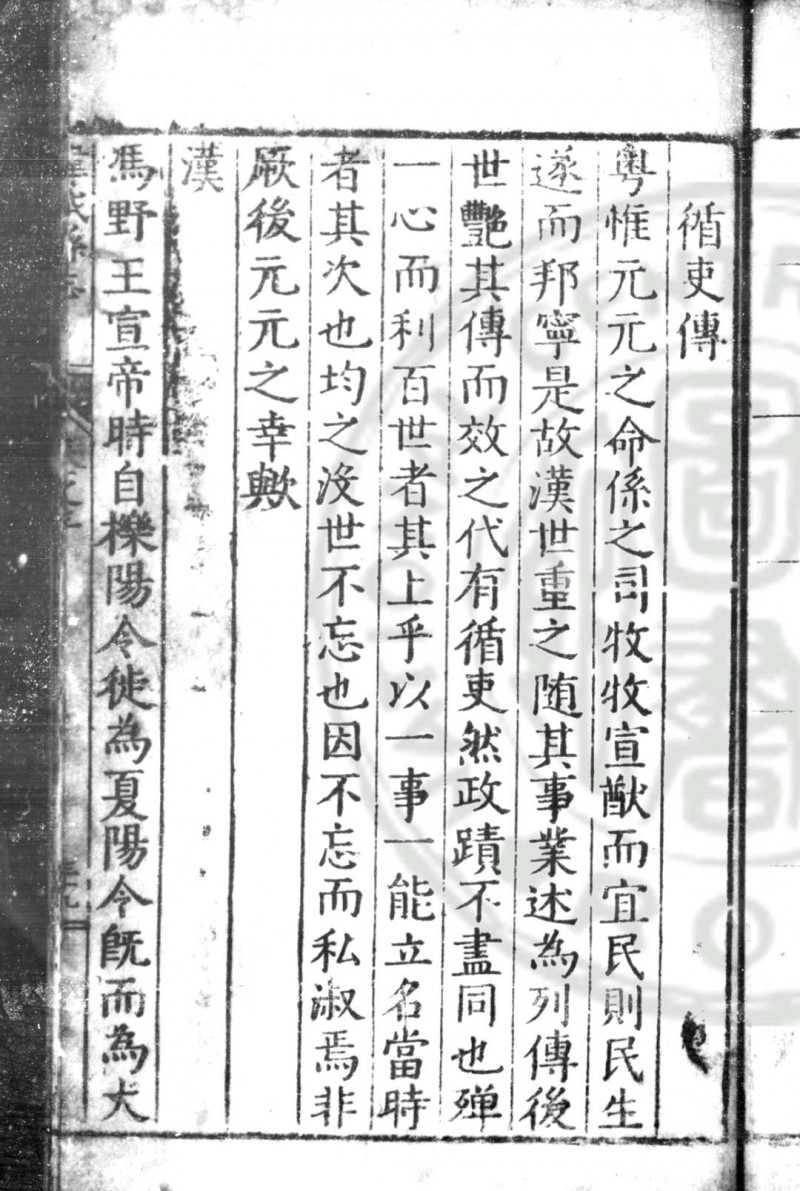 循吏傳
粤惟元元之命係之司牧牧宣猷而宜民則民生
遂而邦寧是故漢世重之随其事業述為列傳後
世艷其傳而效之代有循吏然政蹟不盡同也殫
一心而利百世者其上乎以一事一能立名當時
者其次也均之沒世不忘也因不忘而私淑焉非
厥後元元之幸歟
漢
馮野王宣帝時自櫟陽令徙為夏陽令既而為大